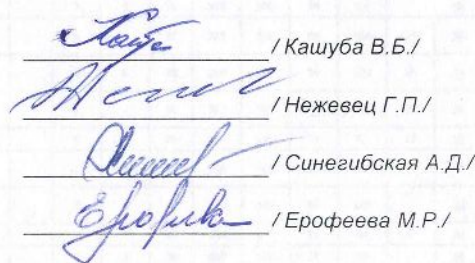 / Кашуба В.Б./
/ Нежевец Г.П./
/ Синегибская А.Д./
/ Ерофеева М.Р./